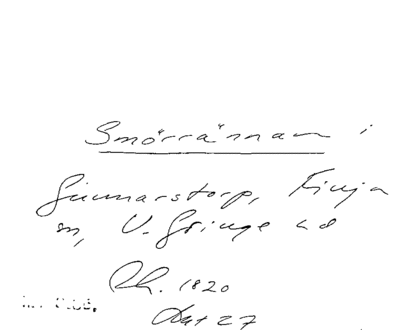 Smörrännan i
Gunnarstorp, Finja
sn, V. Göinge hd
Rh. 1820
27